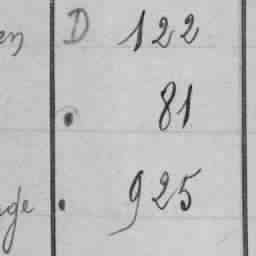 en D 122
. 81
ge . 925